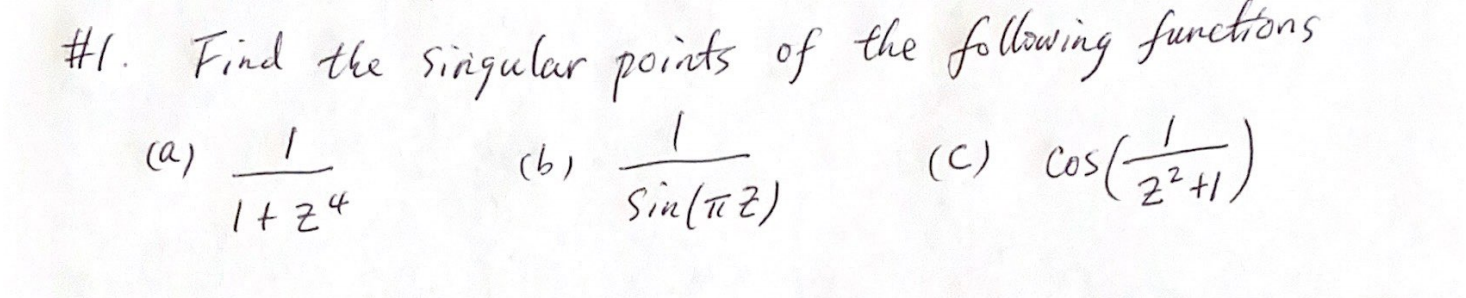 #1. Find the singular points of the following functions
(a) 1/(1+z⁴) (b) 1/sin(πz) (c) cos(1/(z²+1))